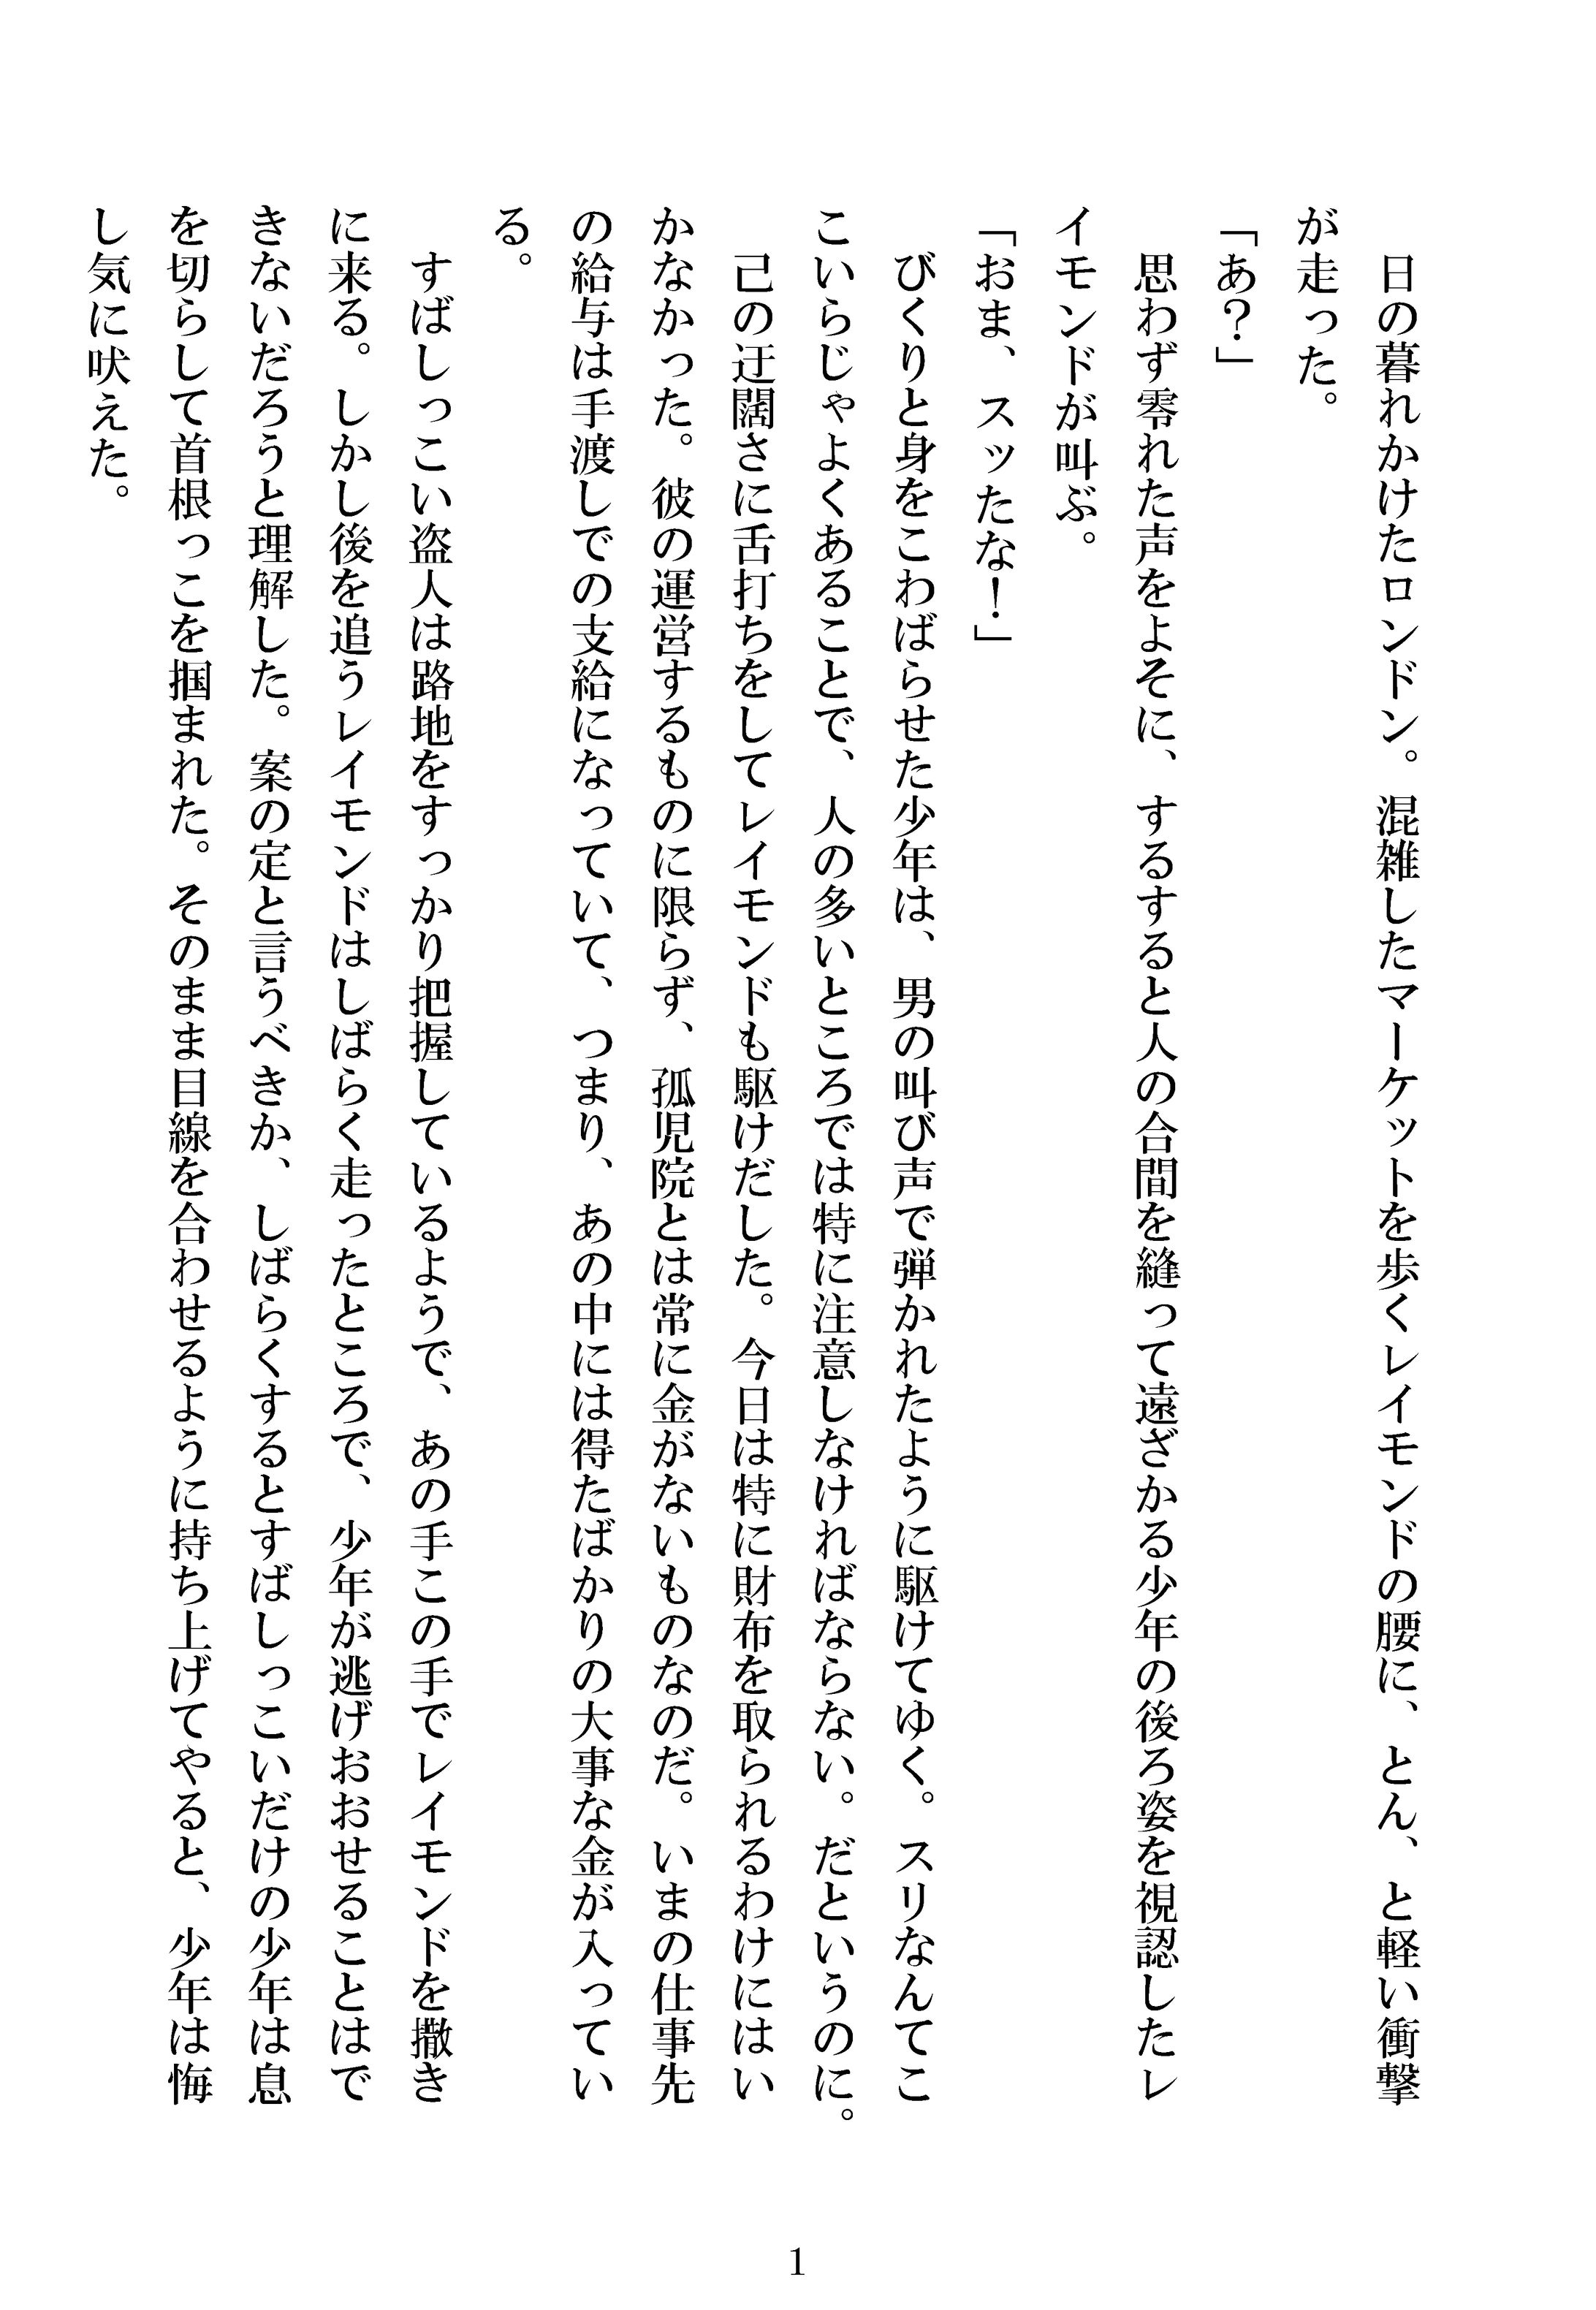 日の暮れかけたロンドン。混雑したマーケットを歩くレイモンドの腰に、とん、と軽い衝撃
が走った。
「あ？」
　思わず零れた声をよそに、するすると人の合間を縫って遠ざかる少年の後ろ姿を視認したレ
イモンドが叫ぶ。
「おま、スッたな！」
　びくりと身をこわばらせた少年は、男の叫び声で弾かれたように駆けてゆく。スリなんてこ
こいらじゃよくあることで、人の多いところでは特に注意しなければならない。だというのに。
　己の迂闊さに舌打ちをしてレイモンドも駆けだした。今日は特に財布を取られるわけにはい
かなかった。彼の運営するものに限らず、孤児院とは常に金がないものなのだ。いまの仕事先
の給与は手渡しでの支給になっていて、つまり、あの中には得たばかりの大事な金が入ってい
る。
　すばしっこい盗人は路地をすっかり把握しているようで、あの手この手でレイモンドを撒き
に来る。しかし後を追うレイモンドはしばらく走ったところで、少年が逃げおおせることはで
きないだろうと理解した。案の定と言うべきか、しばらくするとすばしっこいだけの少年は息
を切らして首根っこを掴まれた。そのまま目線を合わせるように持ち上げてやると、少年は悔
し気に吠えた。
1